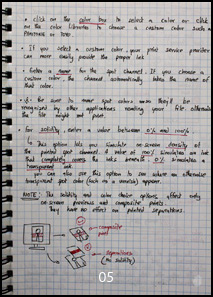 • click on the color box to select a color or click
on the color libraries to choose a custom color such a
PANTONE or TOYO.
• If you select a custom color, your print service provider
can more easily provide the proper ink
• Enter a name for the spot channel. If you choose a
custom color, the channel automatically takes the name of
that color.
• Be sure to name spot colors so they'll be
recognized by other applications reading your file otherwise
the file might not print.
• for solidity, enter a value between 0% and 100%.
This option lets you simulate on-screen density of
the printed spot channel. A value of 100% simulates an ink
that completely covers the inks beneath 0% simulates a
transparent ink
you can also use this option to see where an otherwise
transparent spot color (such as a varnish) appear.
NOTE: The solidity and color choice options affect only
on-screen previews and composite prints.
They have no effect on printed separations.
composite
print
separations
(No solidity)
05